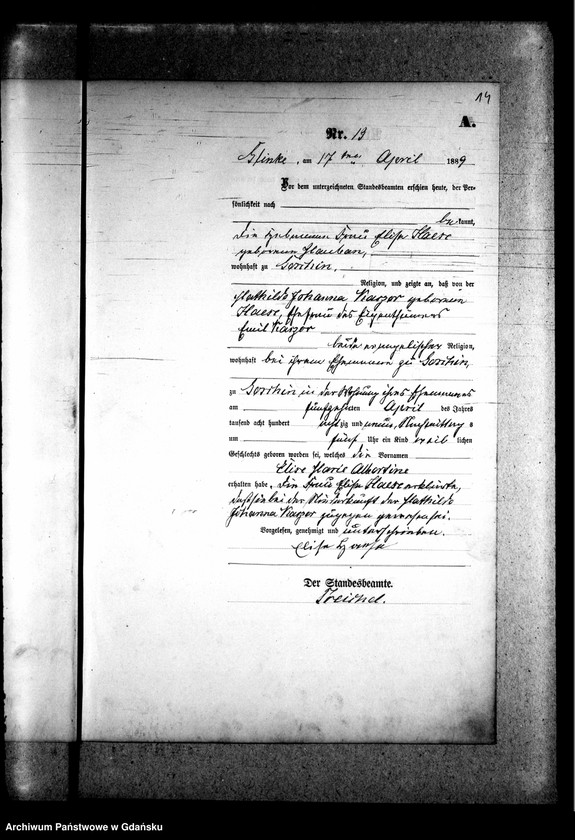 14
A.
Nr. 13
Glinke, am 17ten April 1889
Vor dem unterzeichneten Standesbeamten erschien heute, der Per-
sönlichkeit nach
bekannt,
die Hebamme Frau Elise Haese
geborene
wohnhaft zu Gorshin,
Religion, und zeigte an, daß von der
Mathilde Johanna Kaczor geborene
Haese, Ehefrau des Eigenthümers
Emil Kaczor
beide evangelischer Religion,
wohnhaft bei ihrem Ehemanne zu Gorshin,
zu Gorshin in der Wohnung ihres Ehemannes
am fünfzehnten April des Jahres
tausend acht hundert achtzig und neun, Nachmittags
um fünf Uhr ein Kind weiblichen
Geschlechts geboren worden sei, welches die Vornamen
Elise Marie Albertine
erhalten habe. Die Frau Elise Haese erklärte,
daß sie bei der Niederkunft der Mathilde
Johanna Kaczor zugegen gewesen sei.
Vorgelesen, genehmigt und unterschrieben.
Elise Haese
Der Standesbeamte.
Treichel.
Archiwum Państwowe w Gdańsku